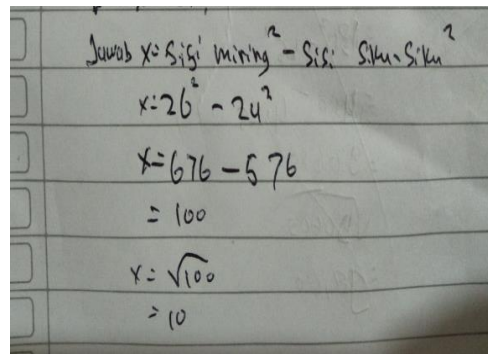 Jawab x = Sisi miring² - Sisi Siku-Siku²
x = 26² - 24²
x = 676 - 576
= 100
x = √100
= 10